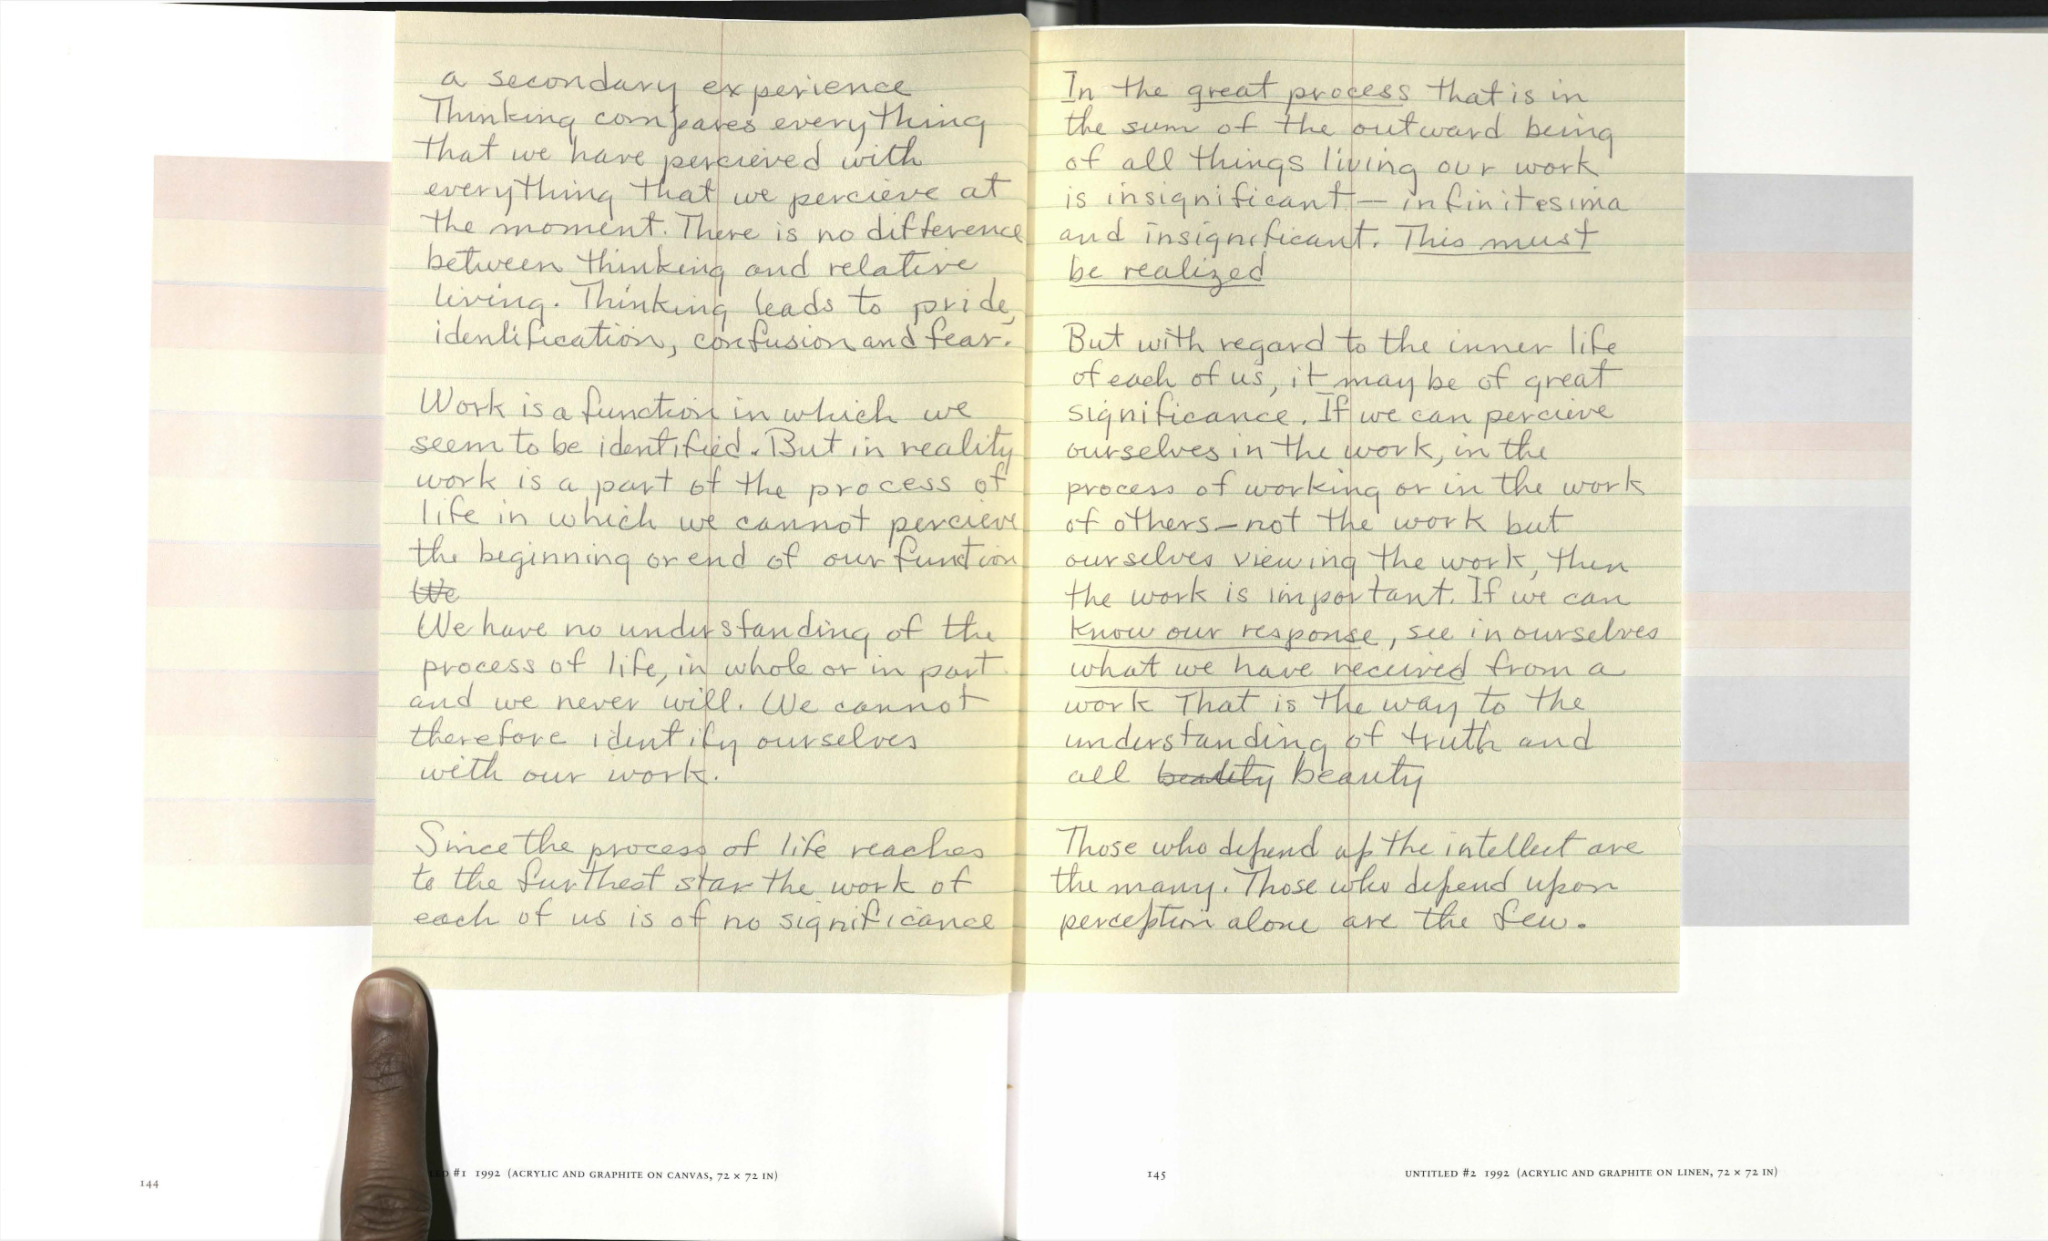 a secondary experience
Thinking compares everything
that we have percieved with
everything that we percieve at
the moment. There is no difference
between thinking and relative
living. Thinking leads to pride,
identification, confusion and fear.
Work is a function in which we
seem to be identified. But in reality
work is a part of the process of
life in which we cannot percieve
the beginning or end of our function
We
We have no understanding of the
process of life, in whole or in part
and we never will. We cannot
therefore identify ourselves
with our work.
Since the process of life reaches
to the furthest star the work of
each of us is of no significance
In the great process that is in
the sum of the outward being
of all things living our work
is insignificant – infinitesima
and insignificant. This must
be realized
But with regard to the inner life
of each of us, it may be of great
significance. If we can percieve
ourselves in the work, in the
process of working or in the work
of others – not the work but
ourselves viewing the work, then
the work is important. If we can
know our response, see in ourselves
what we have received from a
work That is the way to the
understanding of truth and
all beauty
Those who depend up the intellect are
the many. Those who depend upon
perception alone are the few.
144
#1 1992 (ACRYLIC AND GRAPHITE ON CANVAS, 72 × 72 IN)
145
UNTITLED #2 1992 (ACRYLIC AND GRAPHITE ON LINEN, 72 × 72 IN)